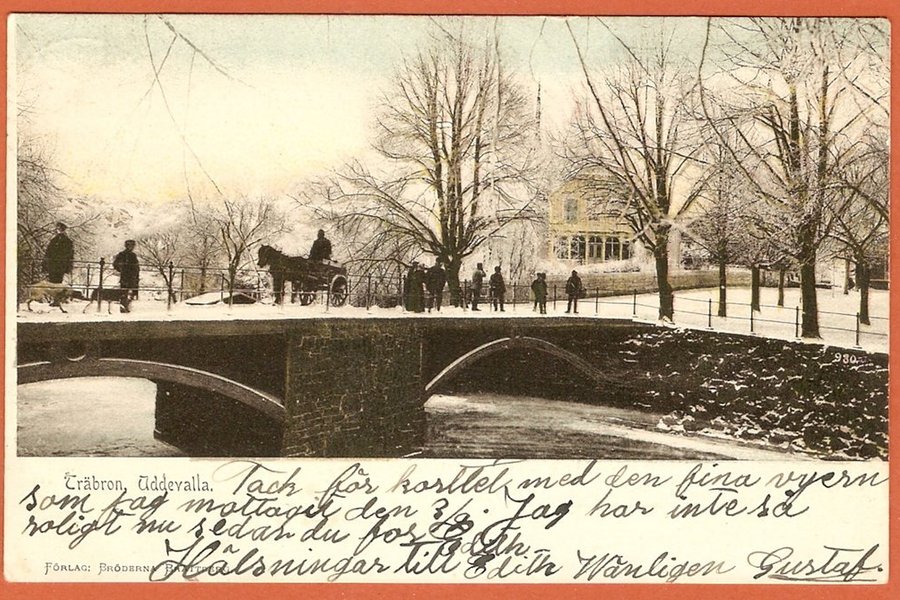 980.
Träbron, Uddevalla.
Tack för korttet med den fina vyern
som jag mottagit den 3/9. Jag har inte så
roligt nu sedan du for Edith.
Hälsningar till Edith Wänligen Gustaf.
FÖRLAG: BRÖDERNA